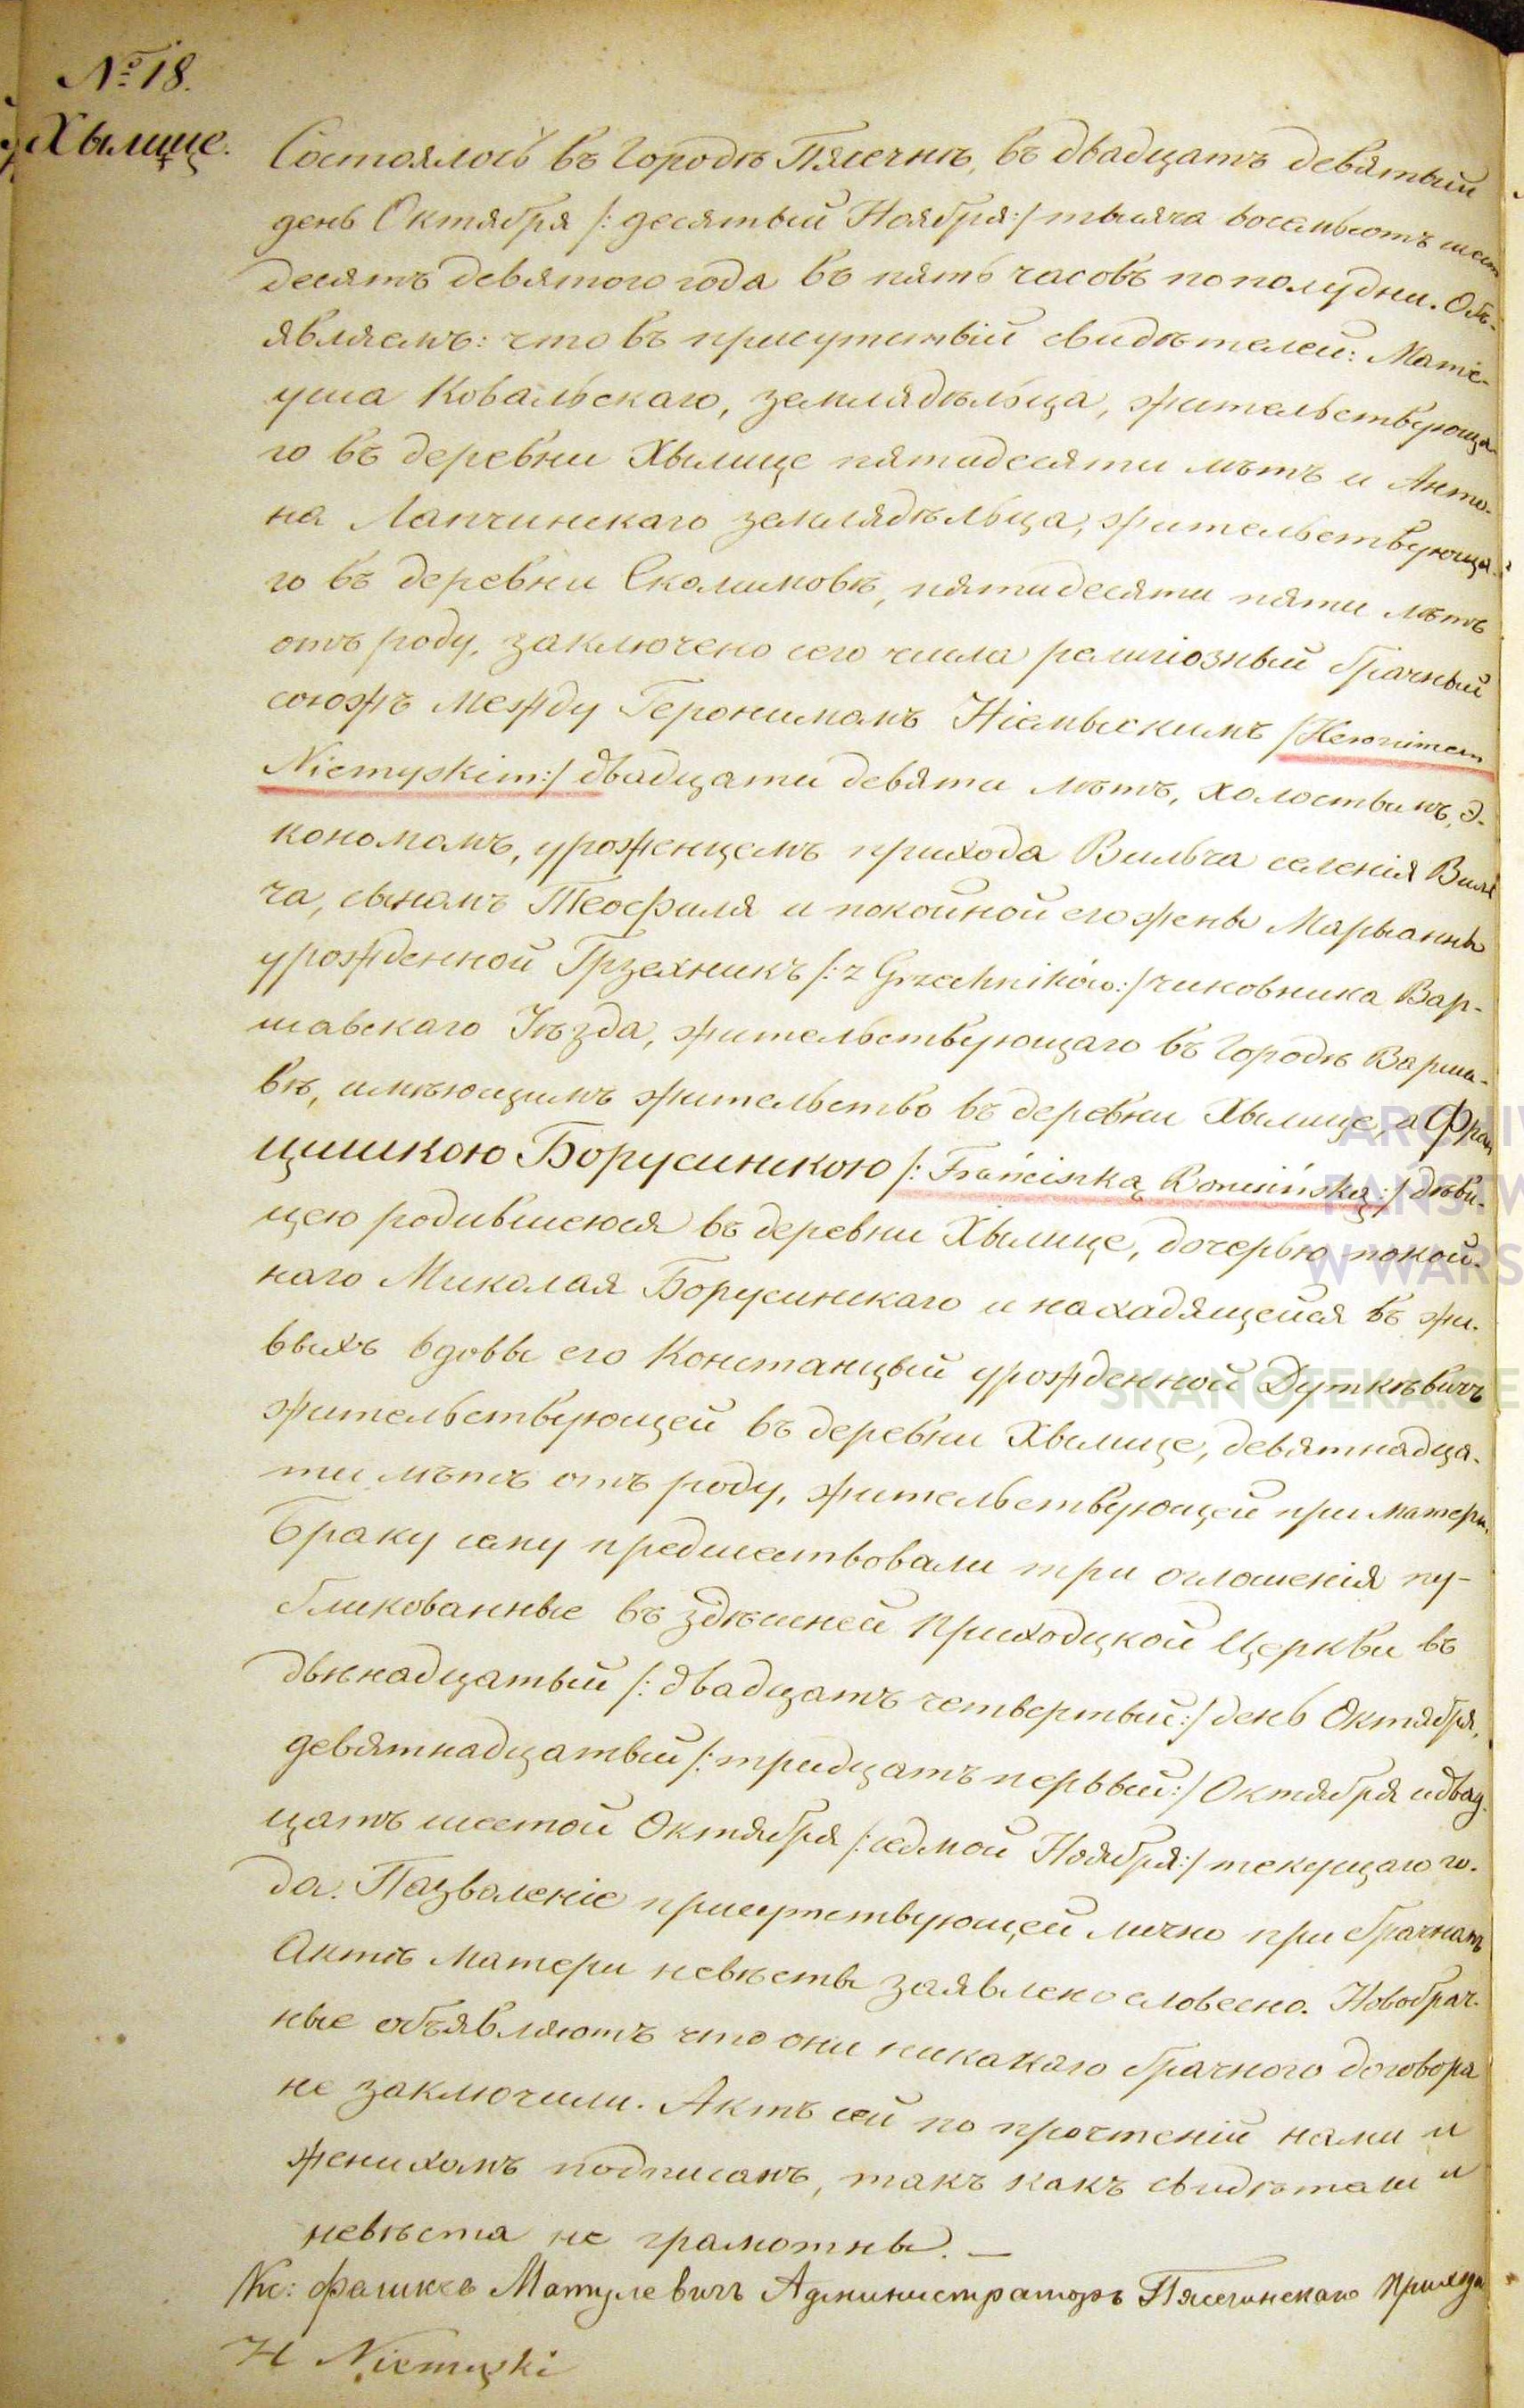 № 18.
Хылице.
Состоялось въ городѣ Пясечнѣ, въ двадцать девятый
день Октября /: десятый Ноября :/ тысяча восемьсотъ шесть
десятъ девятого года въ пять часовъ пополудни. Объ-
являемъ: что въ присутствій свидѣтелей: Мате-
уша Ковальскаго, земледѣльца, жительствующа-
го въ деревни Хылице пятидесяти лѣтъ и Анто-
на Лапчинскаго земледѣльца, жительствующа-
го въ деревни Сколимовѣ, пятидесяти пяти лѣтъ
отъ роду, заключено сего числа религіозный брачный
союжъ между Геронимомъ Ніемыскимъ /: Heronimem
Niemyskim :/ двадцати девяти лѣтъ, холостымъ, э-
кономомъ, уроженцемъ прихода Вильча селенія Виль
ча, сыномъ Теофиля и покойной его жены Марыанны
урожденной Грзехникъ /: z Grzechników :/ чиновника Вар-
шавскаго Уѣзда, жительствующаго въ городѣ Варша-
вѣ, имѣющимъ жительство въ деревни Хылице, а Фран
цишкою Борусинскою /: Franciszką Borusińską :/ дѣви-
цею родившеюся въ деревни Хылице, дочерью покой-
наго Миколая Борусинскаго и находящейся въ жи-
выхъ вдовы его Констанцый урожденной Дуткѣвичъ
жительствующей въ деревни Хылице, девятнадца-
ти лѣтъ отъ роду, жительствующей при матери.
Браку сему предшествовали три оглошенія пу-
бликованные въ здѣшней Приходцкой Церкви въ
двѣнадцатый /: двадцать четвертый :/ день Октября,
девятнадцатый /: тридцать первый :/ Октября и двад-
цать шестой Октября /: седмой Ноября :/ текущаго го-
да. Пазволеніе присутствующей лично при брачномъ
Актѣ матери невѣсты заявлено словесно. Новобрач-
ные объявляютъ что они никакаго брачного договора
не заключили. Актъ сей по прочтеній нами и
женихомъ подписанъ, такъ какъ свидѣтели и
невѣста не грамотны. —
Кс: Матулевичъ Администраторъ Пясечинскаго Прихода
H Niemyski
ARCHIW
PAŃSTW
W WARS
SKANOTEKA.GE